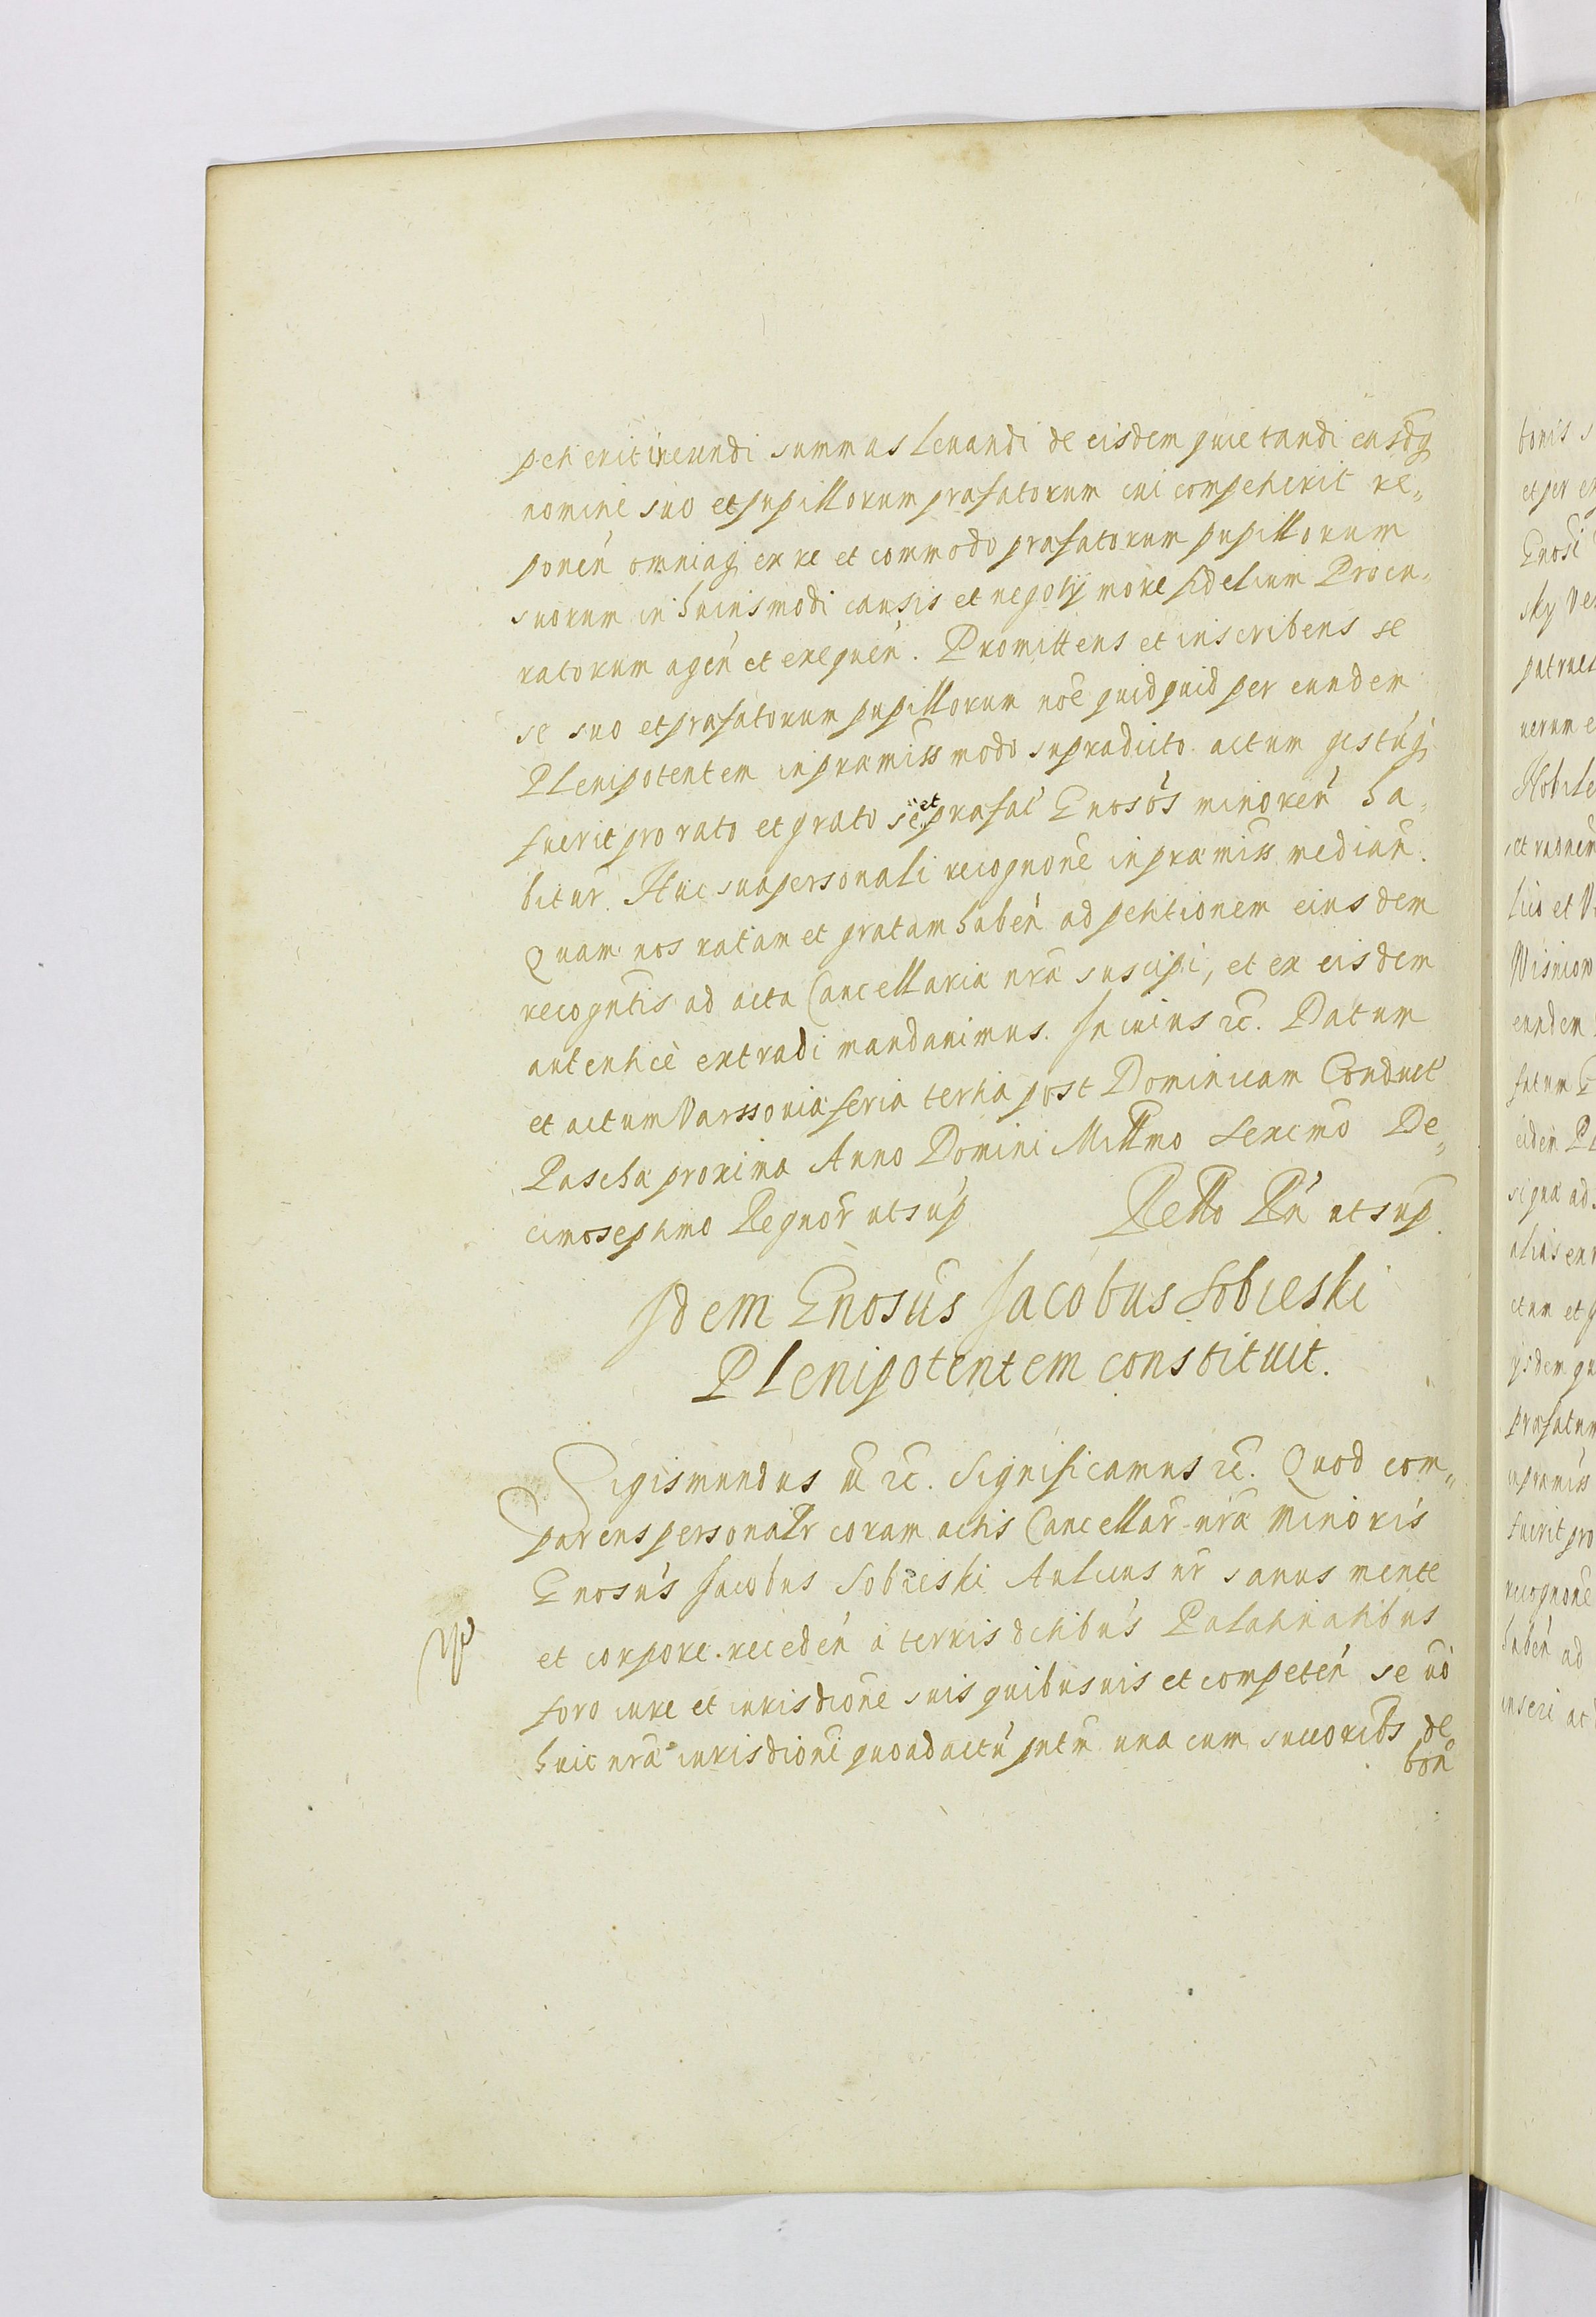 petierit ineundi summas levandi de eisdem quietandi easdq
nomine suo et pupillorum præfatorum cui competierit re„
ponen̄ omniaq ex re et commodo præfatorum pupillorum
suorum in huiusmodi causis et negotÿ more fidelium Procu„
ratorum agen̄ et exequen̄. Promittens et inscribens se
se suo et præfatorum pupillorum noe͞ quidquid per eundem
Plenipotentem in præmiss modo supradicto actum gestúq
fuerit pro rato et grato se et præfat Gnosos minoren̄ ha„
bitur. Huc sua personali recognone͞ in præmiss median̄.
Quam nos ratam et gratam haben̄ ad petitionem eiusdem
recogntis ad acta Cancellariæ nræ suscipi, et ex eisdem
autentice extradi mandavimus. In cuius rc̄. Datum
et actum Varssoviæ feria tertia post Dominicam Conduct
Paschæ proxima Anno Domini Millmo Sexcmo De„
cimoseptimo Regnor̄ ut sup̄ Retto Rn̄ ut sup̄.
Idem Gnosus Jacobus Sobieski
Plenipotentem constituit.
Sigismundus III rc̄. Significamus rc̄. Quod com„
parens personalr coram actis Cancellar̄ nræ Minoris
Gnosus Jacobus Sobieski Aulicus nr̄ sanus mente
et corpore. receden̄ a terris dctibus Palatinatibus
foro iure et iurisdione͞ suis quibusuis et competen̄ se uo͞
huic nræ iurisdioni quoad actū pntm̄ una cum succoribs de
bon̄
bonis s
et per e
Gnosi
sky Ve
patruel
uerum e
Nobile
lico et V
Wisniow
eundem
fatum G
eidem Pl
signa ad
alias ex
ctum et g
ÿsdem qu
præfatum
in præmiss
fuerit pro
recognone
haben̄ ad